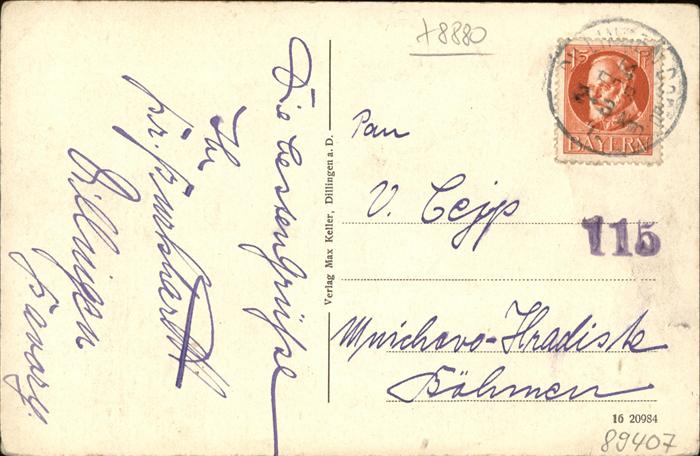 +8880
Die besten Grüße
Ihr
Fr. Burkhardt
Dillingen
Bavary
Verlag Max Keller, Dillingen a. D.
15 Pf
BAYERN
Pan
V. Cejp
115
Mnichovo-Hradiste
Böhmen
16 20984
89407